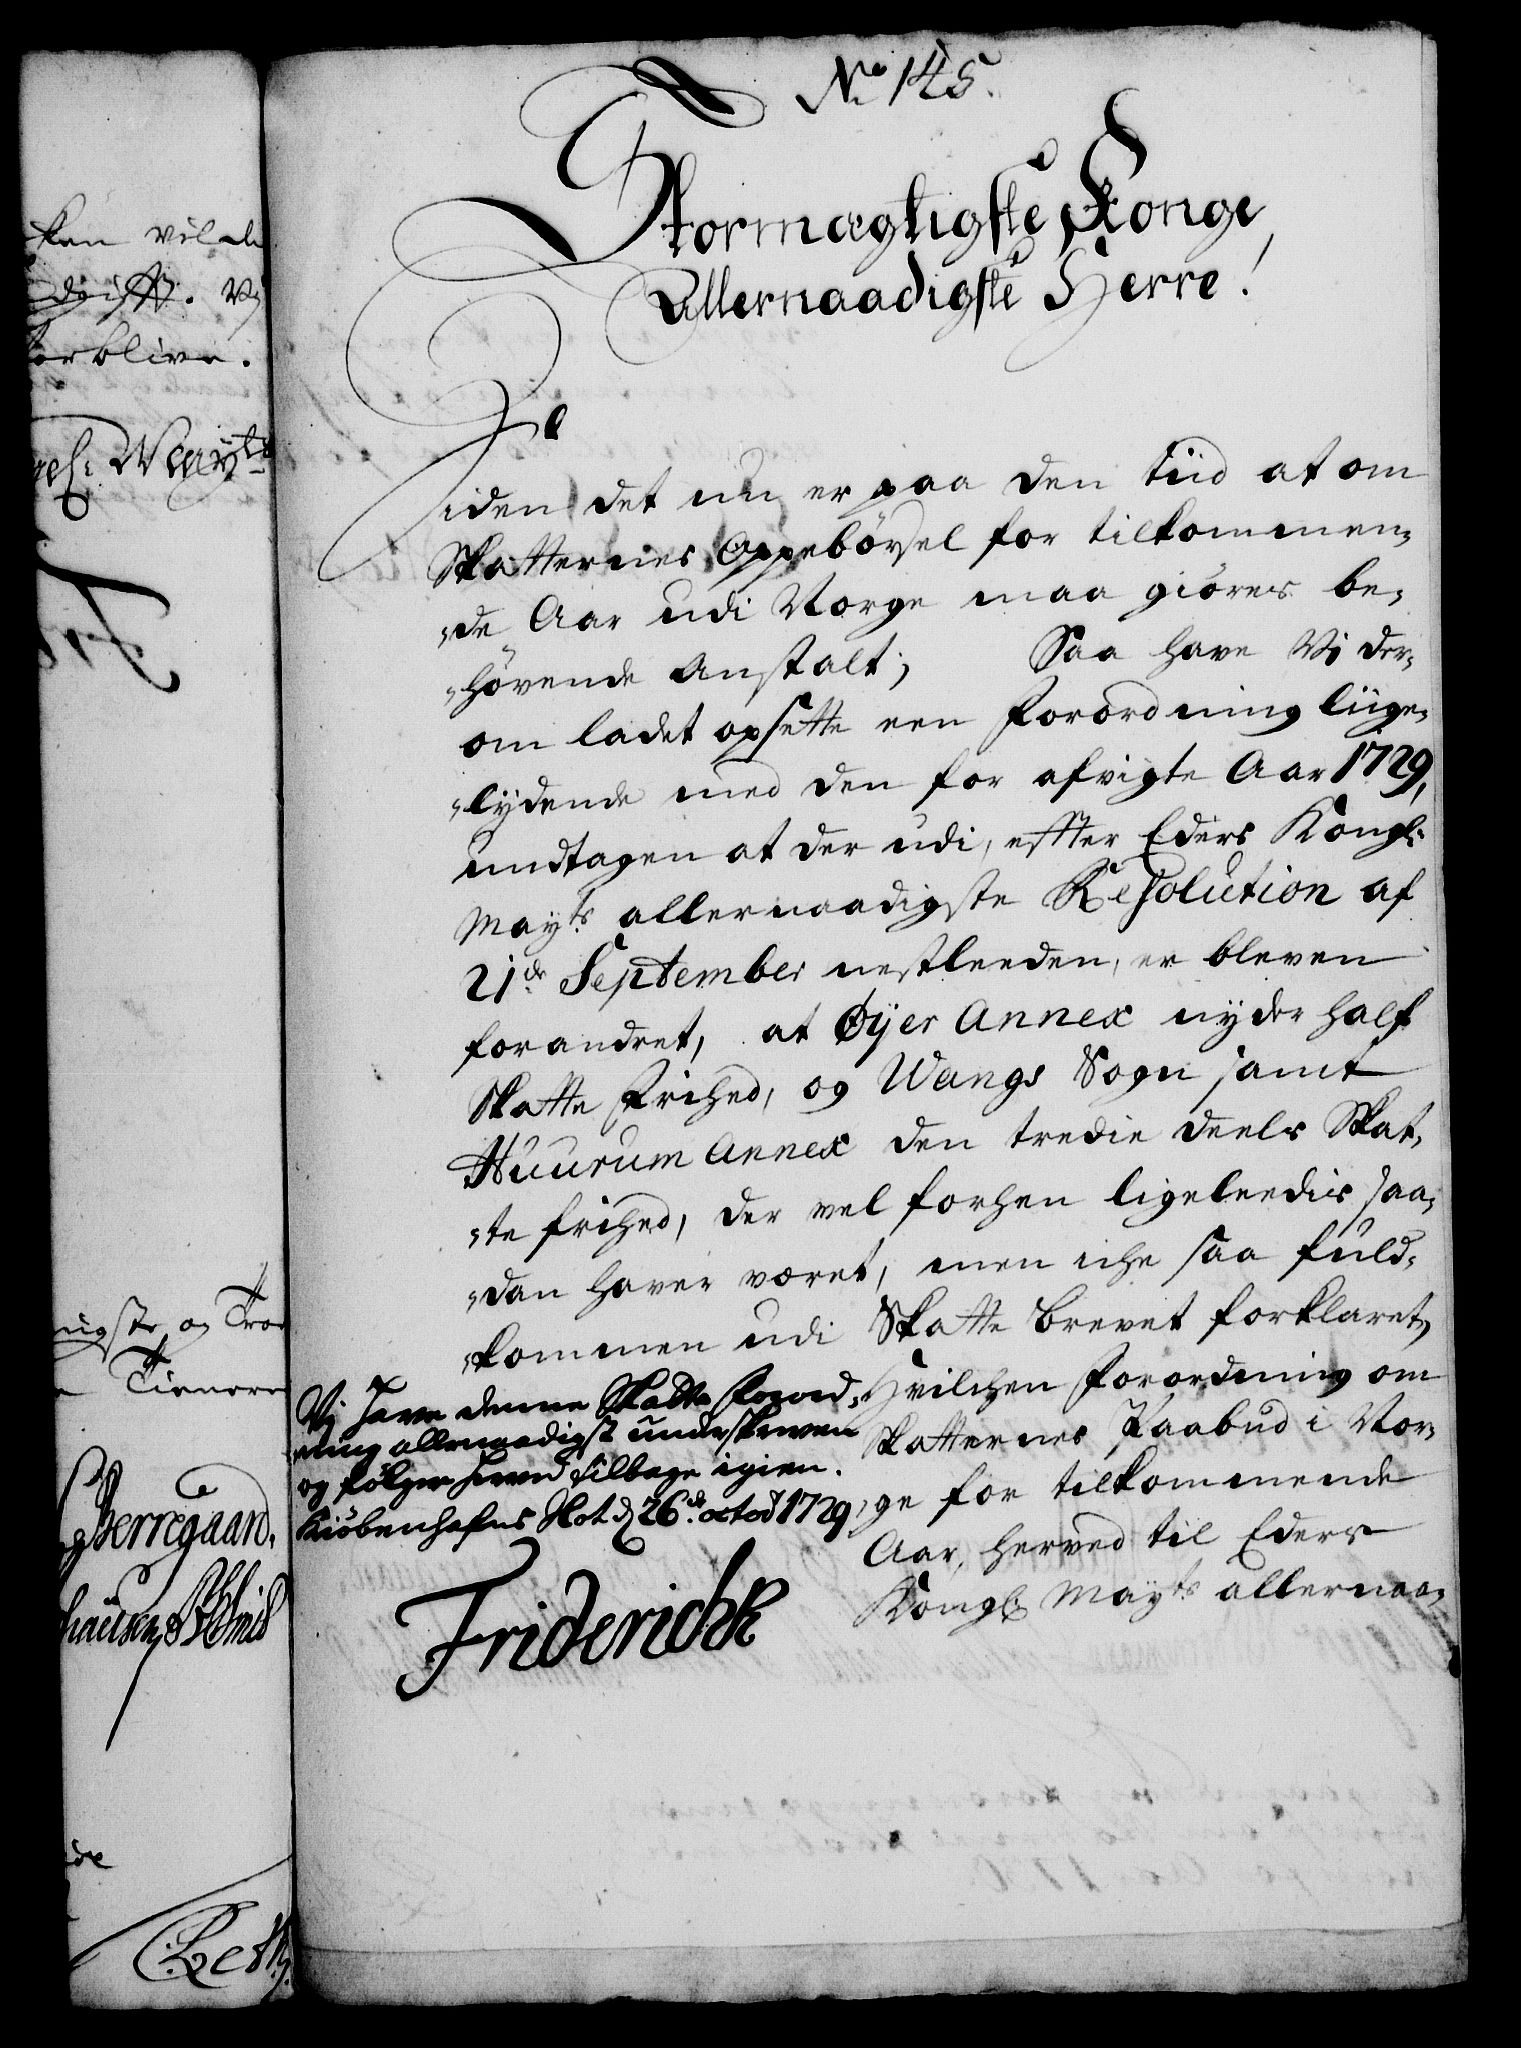 No 145.
Stormægtigste Konge
Allernaadigste Herre!
Siden det nu er paa den tiid at om
Skatternes Oppebörsel for tilkommen„
„de Aar udi Norge maa giöres be„
„hövende Anstalt; Saa have Vi der„
om ladet opsette een Forordning liige„
„lydende med den for afvigte Aar 1729,
undtagen at der udi, effter Eders Kongl:
Mayts allernaadigste Resolution af
21de September nestleeden, er bleven
forandret, at Øyer Annex nyder half
Skatte Frihed, og Wangs Sogn samt
Huurum Annex den tredie deels Skat„
„te frihed, der vel forhen ligeleedis saa„
„dan haver været, men iche saa fuld„
„kommen udi Skatte Brevet forklaret,
Hvilchen Forordning om
Skatternes Paabud i Nor„
„ge for tilkommende
Aar, herved til Eders
Kongl: Mayts allernaa„
Vi have denne Skatte Forord„
„ning allernaadigst underskreven
og følger herved tilbage igien.
Kiöbenhafns Slot d 26de octob 1729,
Friderich R
ken vilde
torblive.
Mayts
og Troe
Tienere
Berregaard.